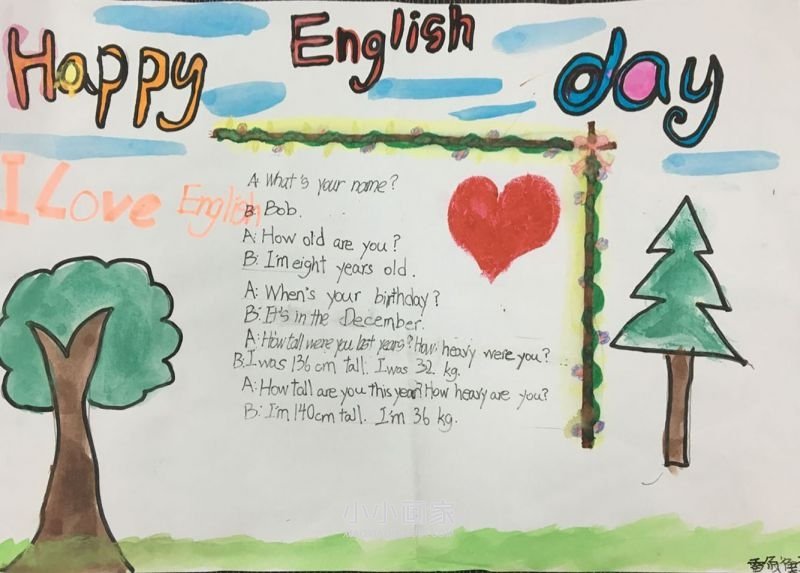 Happy English day
I Love English
A: What's your name?
B: Bob.
A: How old are you?
B: I'm eight years old.
A: When's your birthday?
B: It's in the December.
A: How tall were you last years? How heavy were you?
B: I was 136 cm tall. I was 32 kg.
A: How tall are you this year? How heavy are you?
B: I'm 140 cm tall. I'm 36 kg.
小小画家